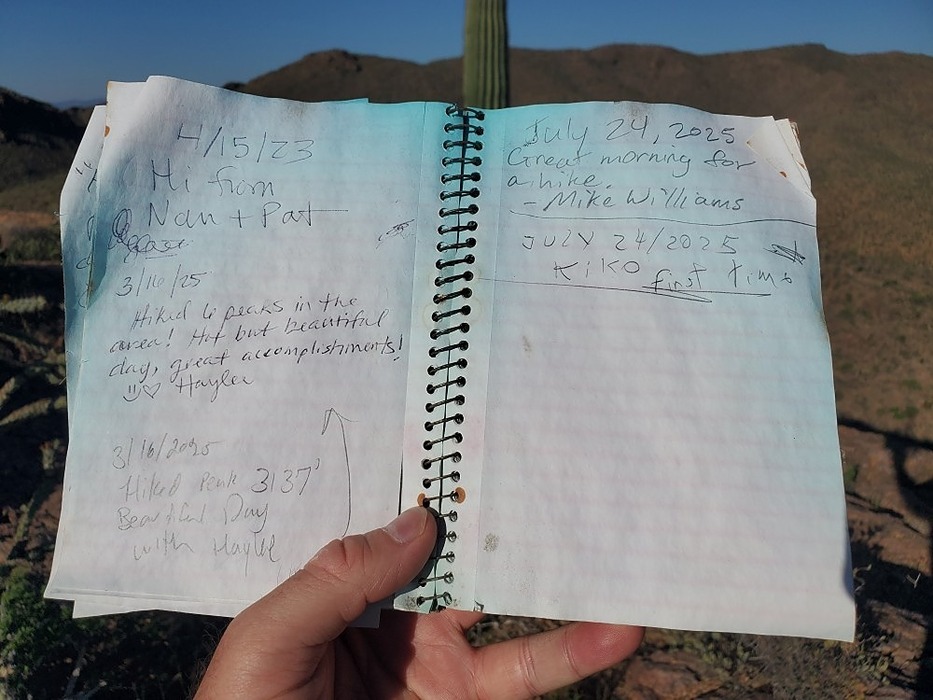 4/15/23
Hi from
Nan + Pat
3/16/25
Hiked 6 peaks in the
area! Hot but beautiful
day, great accomplishments!
Haylee
3/16/2025
Hiked Peak 3137'
Beautiful Day
with Haylee
July 24, 2025
Great morning for
a hike.
- Mike Williams
JULY 24/2025
KIKO first time